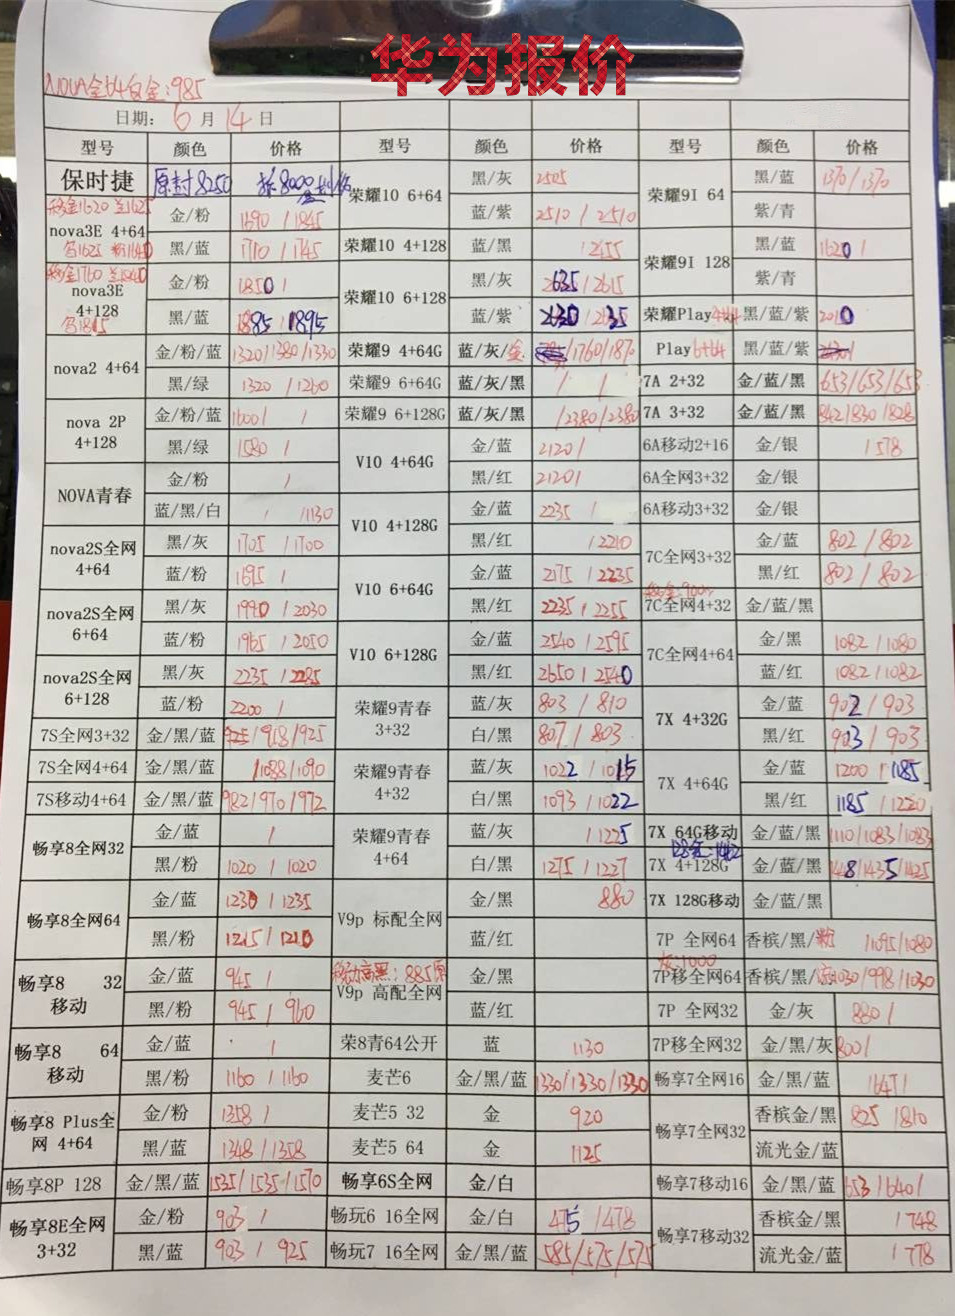 华为报价
NOVA全4白金:985
日期: 6 月 14 日
型号 颜色 价格 型号 颜色 价格 型号 颜色 价格
保时捷 原封8250 拆8000
荣耀10 6+64 黑/灰 2505 荣耀9I 64 黑/蓝 1370/1370
移金1620 兰1625
nova3E 4+64 金/粉 1690/1845 蓝/紫 2510/2510 紫/青
黑/蓝 1710/1745 荣耀10 4+128 蓝/黑 /2455 荣耀9I 128 黑/蓝 1620/
nova3E 4+128 金/粉 1850/ 荣耀10 6+128 黑/灰 2635/2615 紫/青
黑/蓝 1885/1895 蓝/紫 荣耀Play 4+64 黑/蓝/紫 2010
nova2 4+64 金/粉/蓝 1320/1380/1330 荣耀9 4+64G 蓝/灰/金 /1760/1870 Play 6+64 黑/蓝/紫
黑/绿 1320/1260 荣耀9 6+64G 蓝/灰/黑 / / 7A 2+32 金/蓝/黑 653/653/653
nova 2P 4+128 金/粉/蓝 1600/ / 荣耀9 6+128G 蓝/灰/黑 /2380/2380 7A 3+32 金/蓝/黑 842/830/828
黑/绿 1580 / V10 4+64G 金/蓝 2120/ 6A移动2+16 金/银 1578
NOVA青春 金/粉 / 黑/红 2120/ 6A全网3+32 金/银
蓝/黑/白 / /1130 V10 4+128G 金/蓝 2235 / 6A移动3+32 金/银
nova2S全网 4+64 黑/灰 1705/1700 黑/红 /2210 7C全网3+32 金/蓝 802/802
蓝/粉 1695 / V10 6+64G 金/蓝 2175/2235 黑/红 802/802
nova2S全网 6+64 黑/灰 1990/2030 黑/红 2235/2255 7C全网4+32 金/蓝/黑
蓝/粉 1965/2050 V10 6+128G 金/蓝 2540/2595 7C全网4+64 金/黑 1082/1080
nova2S全网 6+128 黑/灰 2235/2285 黑/红 2650/2540 蓝/红 1082/1082
蓝/粉 2200 / 荣耀9青春 3+32 蓝/灰 803/810 7X 4+32G 金/蓝 902/903
7S全网3+32 金/黑/蓝 925/918/925 白/黑 807/803 黑/红 903/903
7S全网4+64 金/黑/蓝 /1088/1090 荣耀9青春 4+32 蓝/灰 1022/1015 7X 4+64G 金/蓝 1200/1185
7S移动4+64 金/黑/蓝 982/970/972 白/黑 1093/1022 黑/红 1185/1220
畅享8全网32 金/蓝 / 荣耀9青春 4+64 蓝/灰 /1225 7X 64G移动 金/蓝/黑 1110/1083/1083
黑/粉 1020/1020 白/黑 1275/1227 7X 4+128G 金/蓝/黑 1448/1435/1425
畅享8全网64 金/蓝 1230/1235 V9p 标配全网 金/黑 880 7X 128G移动 金/蓝/黑
黑/粉 1215/1210 蓝/红 7P 全网64 香槟/黑/粉 1095/1080
畅享8 32 移动 金/蓝 945/ 移动高黑:885 V9p 高配全网 金/黑 7P移全网64 香槟/黑/ 1030/998/1030
黑/粉 945/960 蓝/红 7P 全网32 金/灰 880/
畅享8 64 移动 金/蓝 / 荣8青64公开 蓝 1130 7P移全网32 金/黑/灰 800/
黑/粉 1160/1160 麦芒6 金/黑/蓝 1330/1330/1330 畅享7全网16 金/黑/蓝 1647/
畅享8 Plus全网 4+64 金/粉 1358/ 麦芒5 32 金 920 畅享7全网32 香槟金/黑 825/810
黑/蓝 1348/1358 麦芒5 64 金 1125 流光金/蓝
畅享8P 128 金/黑/蓝 1535/1535/1570 畅享6S全网 金/白 畅享7移动16 金/黑/蓝 653/640/
畅享8E全网 3+32 金/粉 903/ 畅玩6 16全网 金/白 475/478 畅享7移动32 香槟金/黑 /748
黑/蓝 903/925 畅玩7 16全网 金/黑/蓝 585/575/575 流光金/蓝 /778